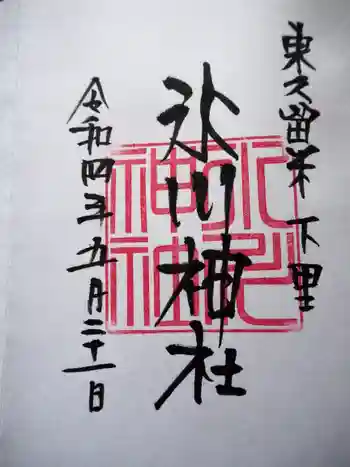 東久留米 下里
氷川神社
令和四年五月二十一日
氷川
神社